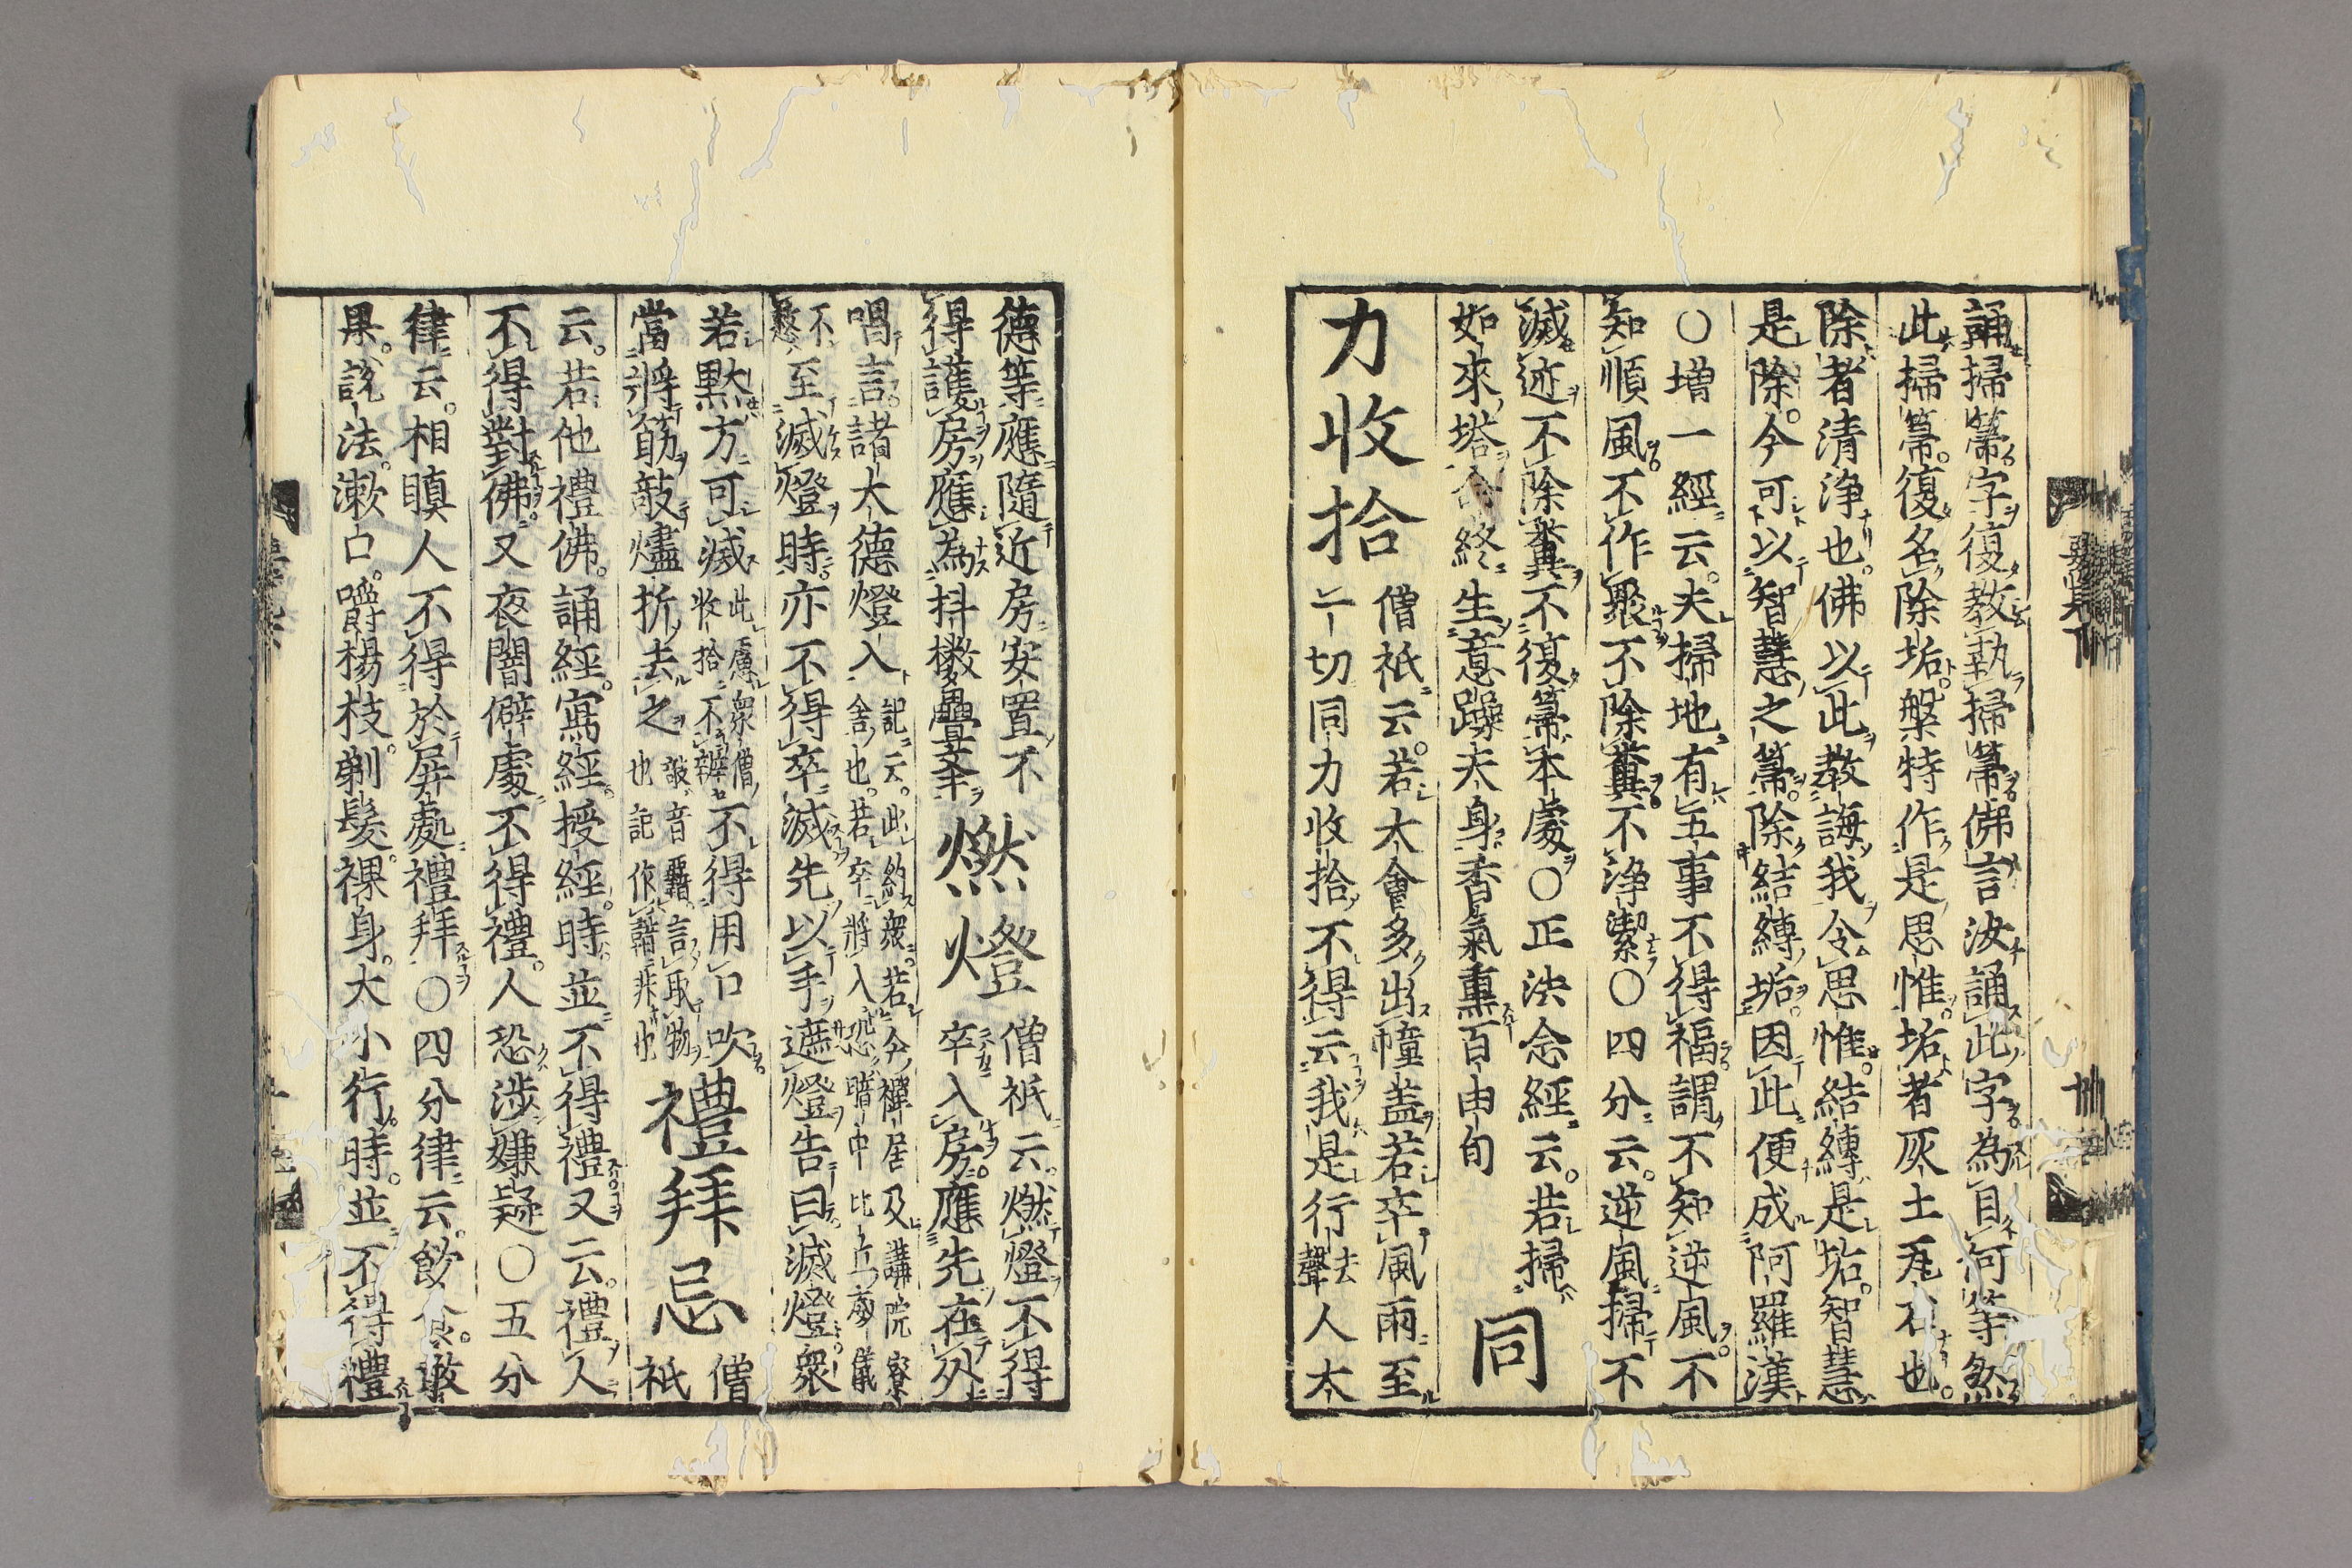 誦掃箒字復教執掃箒佛言汝誦此字為目何等然
此掃箒。復名除垢。槃特作是思惟。垢者灰土瓦石也。
除者清浄也。佛以此教誨我令思惟。結縛是垢。智慧
是除。今可以智慧之箒。除結縛垢。因此便成阿羅漢
○增一經云。夫掃地有五事不得福。謂不知逆風。不
知順風。不作聚不除糞。不浄潔○四分云。逆風掃不
滅迹不除糞不復箒本處○正法念經云。若掃
如來塔命終生意躁天身香氣熏百由旬
同
力收拾
僧祇云。若大會多出幢盖若卒風雨至
一切同力收拾不得云我是行去聲人大
德等應隨近房安置不
得護房應為抖擻疊挙
燃燈
僧祇云。燃燈不得
卒入房。應先在外
唱言。諸大德燈入
記云。此約衆。若今禪居及講院寮
舍也。若卒將入恐暗中比丘廢儀
不至滅燈時。亦不得卒滅先以手遮燈告曰。滅燈衆
若黙方可滅
此慮衆僧
收拾不辦
不得用口吹
當將筯敲燼折去之
音羇。言取物
也記作藉非也
禮拜忌
僧
祇
云。若他禮佛。誦經。寫經。授經。時並不得禮又云。禮人
不得對佛。又夜闇僻處不得禮。人恐涉嫌疑○五分
律云。相瞋人不得於屏處禮拜○四分律云。飲食。噉
果。說法。漱口。嚼楊枝。剃髮。裸身。大小行。時。並不得禮